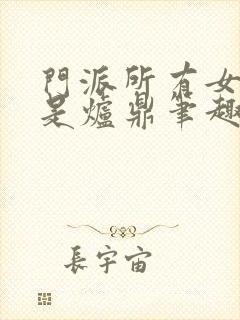 門派所有女
是爐鼎筆趣
長宇宙